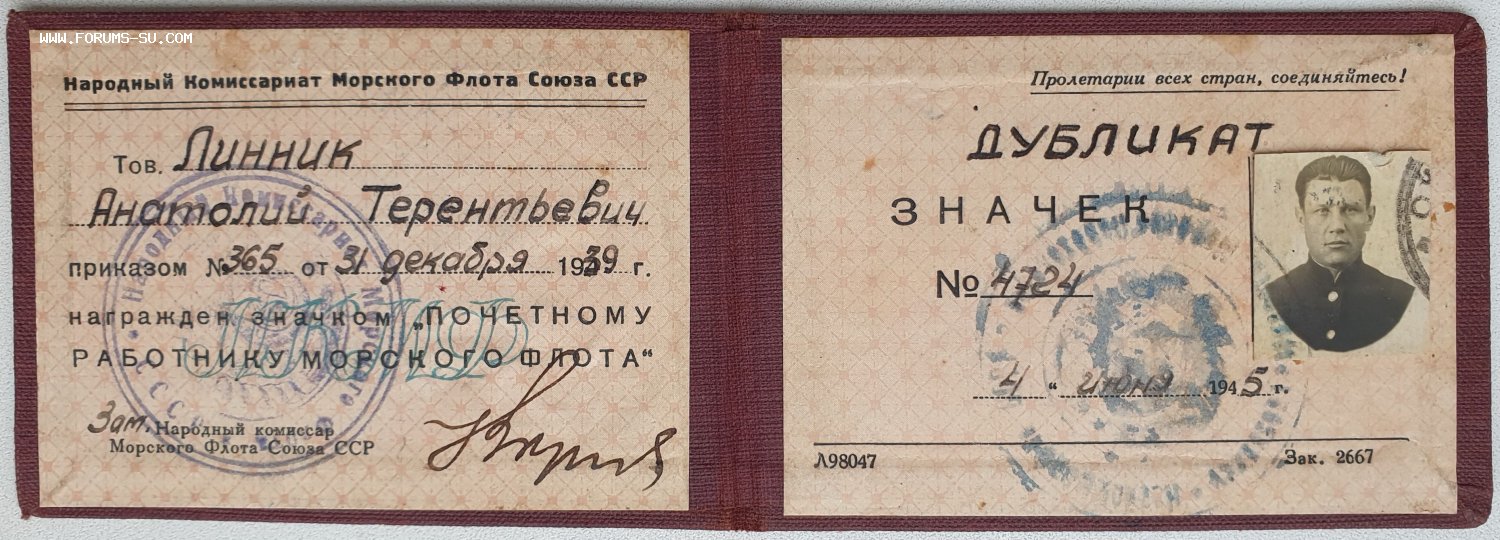 www.forums-su.com
Народный Комиссариат Морского Флота Союза ССР
Тов. Линник
Анатолий Терентьевич
приказом № 365 от 31 декабря 1939 г.
награжден значком „ПОЧЕТНОМУ
РАБОТНИКУ МОРСКОГО ФЛОТА“
Зам. Народный комиссар
Морского Флота Союза ССР
Народный Комиссариат Морского Флота
СССР
Пролетарии всех стран, соединяйтесь!
ДУБЛИКАТ
ЗНАЧЕК
№ 4724
4 “ июня 1945 г.
Л98047
Зак. 2667